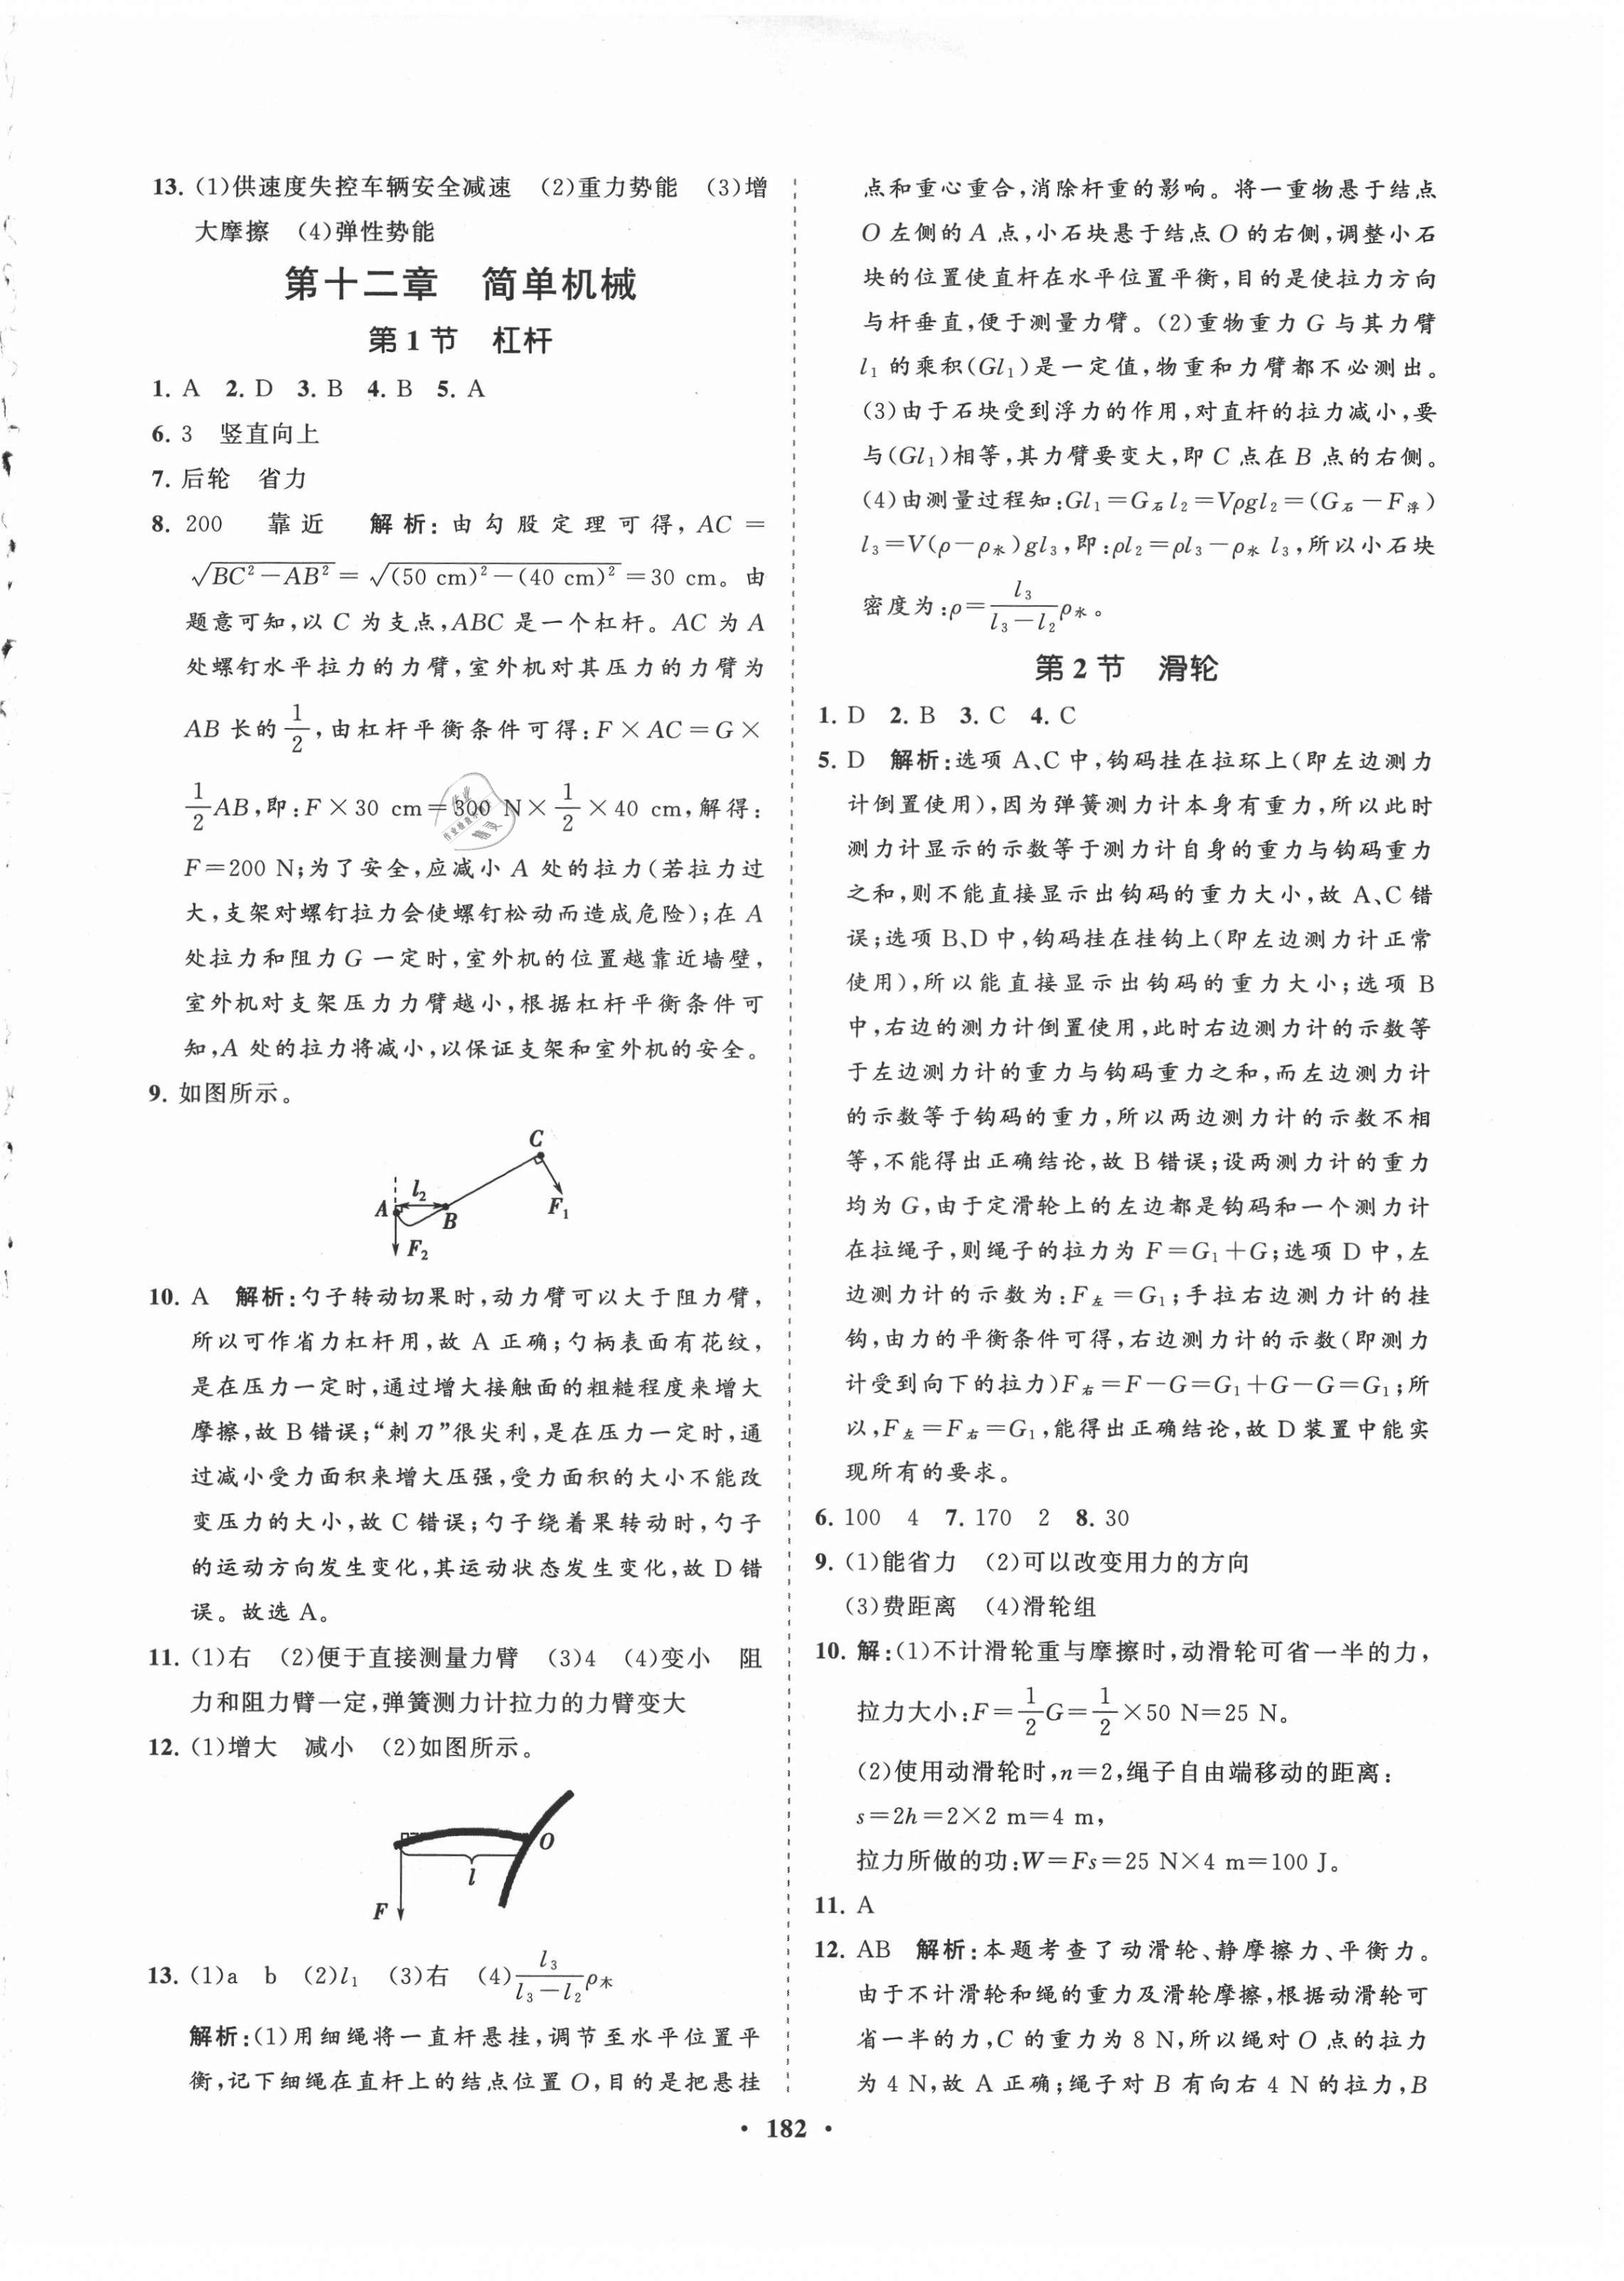 13. (1)供速度失控车辆安全减速 (2)重力势能 (3)增
大摩擦 (4)弹性势能
第十二章 简单机械
第1节 杠杆
1. A 2. D 3. B 4. B 5. A
6. 3 竖直向上
7. 后轮 省力
8. 200 靠近 解析:由勾股定理可得,AC=
√(BC²-AB²)=√((50 cm)²-(40 cm)²)=30 cm。由
题意可知,以C为支点,ABC是一个杠杆。AC为A
处螺钉水平拉力的力臂,室外机对其压力的力臂为
AB长的1/2,由杠杆平衡条件可得:F×AC=G×
1/2AB,即:F×30 cm=300 N×1/2×40 cm,解得:
F=200 N;为了安全,应减小A处的拉力(若拉力过
大,支架对螺钉拉力会使螺钉松动而造成危险);在A
处拉力和阻力G一定时,室外机的位置越靠近墙壁,
室外机对支架压力力臂越小,根据杠杆平衡条件可
知,A处的拉力将减小,以保证支架和室外机的安全。
9. 如图所示。
C
l₂
A
B
F₁
F₂
10. A 解析:勺子转动切果时,动力臂可以大于阻力臂,
所以可作省力杠杆用,故A正确;勺柄表面有花纹,
是在压力一定时,通过增大接触面的粗糙程度来增大
摩擦,故B错误;“刺刀”很尖利,是在压力一定时,通
过减小受力面积来增大压强,受力面积的大小不能改
变压力的大小,故C错误;勺子绕着果转动时,勺子
的运动方向发生变化,其运动状态发生变化,故D错
误。故选A。
11. (1)右 (2)便于直接测量力臂 (3)4 (4)变小 阻
力和阻力臂一定,弹簧测力计拉力的力臂变大
12. (1)增大 减小 (2)如图所示。
O
l
F
13. (1)a b (2)l₁ (3)右 (4)l₃/(l₃-l₂)ρ水
解析:(1)用细绳将一直杆悬挂,调节至水平位置平
衡,记下细绳在直杆上的结点位置O,目的是把悬挂
点和重心重合,消除杆重的影响。将一重物悬于结点
O左侧的A点,小石块悬于结点O的右侧,调整小石
块的位置使直杆在水平位置平衡,目的是使拉力方向
与杆垂直,便于测量力臂。(2)重物重力G与其力臂
l₁的乘积(Gl₁)是一定值,物重和力臂都不必测出。
(3)由于石块受到浮力的作用,对直杆的拉力减小,要
与(Gl₁)相等,其力臂要变大,即C点在B点的右侧。
(4)由测量过程知:Gl₁=G石l₂=Vρgl₂=(G石-F浮)
l₃=V(ρ-ρ水)gl₃,即:ρl₂=ρl₃-ρ水l₃,所以小石块
密度为:ρ=l₃/(l₃-l₂)ρ水。
第2节 滑轮
1. D 2. B 3. C 4. C
5. D 解析:选项A、C中,钩码挂在拉环上(即左边测力
计倒置使用),因为弹簧测力计本身有重力,所以此时
测力计显示的示数等于测力计自身的重力与钩码重力
之和,则不能直接显示出钩码的重力大小,故A、C错
误;选项B、D中,钩码挂在挂钩上(即左边测力计正常
使用),所以能直接显示出钩码的重力大小;选项B
中,右边的测力计倒置使用,此时右边测力计的示数等
于左边测力计的重力与钩码重力之和,而左边测力计
的示数等于钩码的重力,所以两边测力计的示数不相
等,不能得出正确结论,故B错误;设两测力计的重力
均为G,由于定滑轮上的左边都是钩码和一个测力计
在拉绳子,则绳子的拉力为F=G₁+G;选项D中,左
边测力计的示数为:F左=G₁;手拉右边测力计的挂
钩,由力的平衡条件可得,右边测力计的示数(即测力
计受到向下的拉力)F右=F-G=G₁+G-G=G₁;所
以,F左=F右=G₁,能得出正确结论,故D装置中能实
现所有的要求。
6. 100 4 7. 170 2 8. 30
9. (1)能省力 (2)可以改变用力的方向
(3)费距离 (4)滑轮组
10. 解:(1)不计滑轮重与摩擦时,动滑轮可省一半的力,
拉力大小:F=1/2G=1/2×50 N=25 N。
(2)使用动滑轮时,n=2,绳子自由端移动的距离:
s=2h=2×2 m=4 m,
拉力所做的功:W=Fs=25 N×4 m=100 J。
11. A
12. AB 解析:本题考查了动滑轮、静摩擦力、平衡力。
由于不计滑轮和绳的重力及滑轮摩擦,根据动滑轮可
省一半的力,C的重力为8 N,所以绳对O点的拉力
为4 N,故A正确;绳子对B有向右4 N的拉力,B
• 182 •